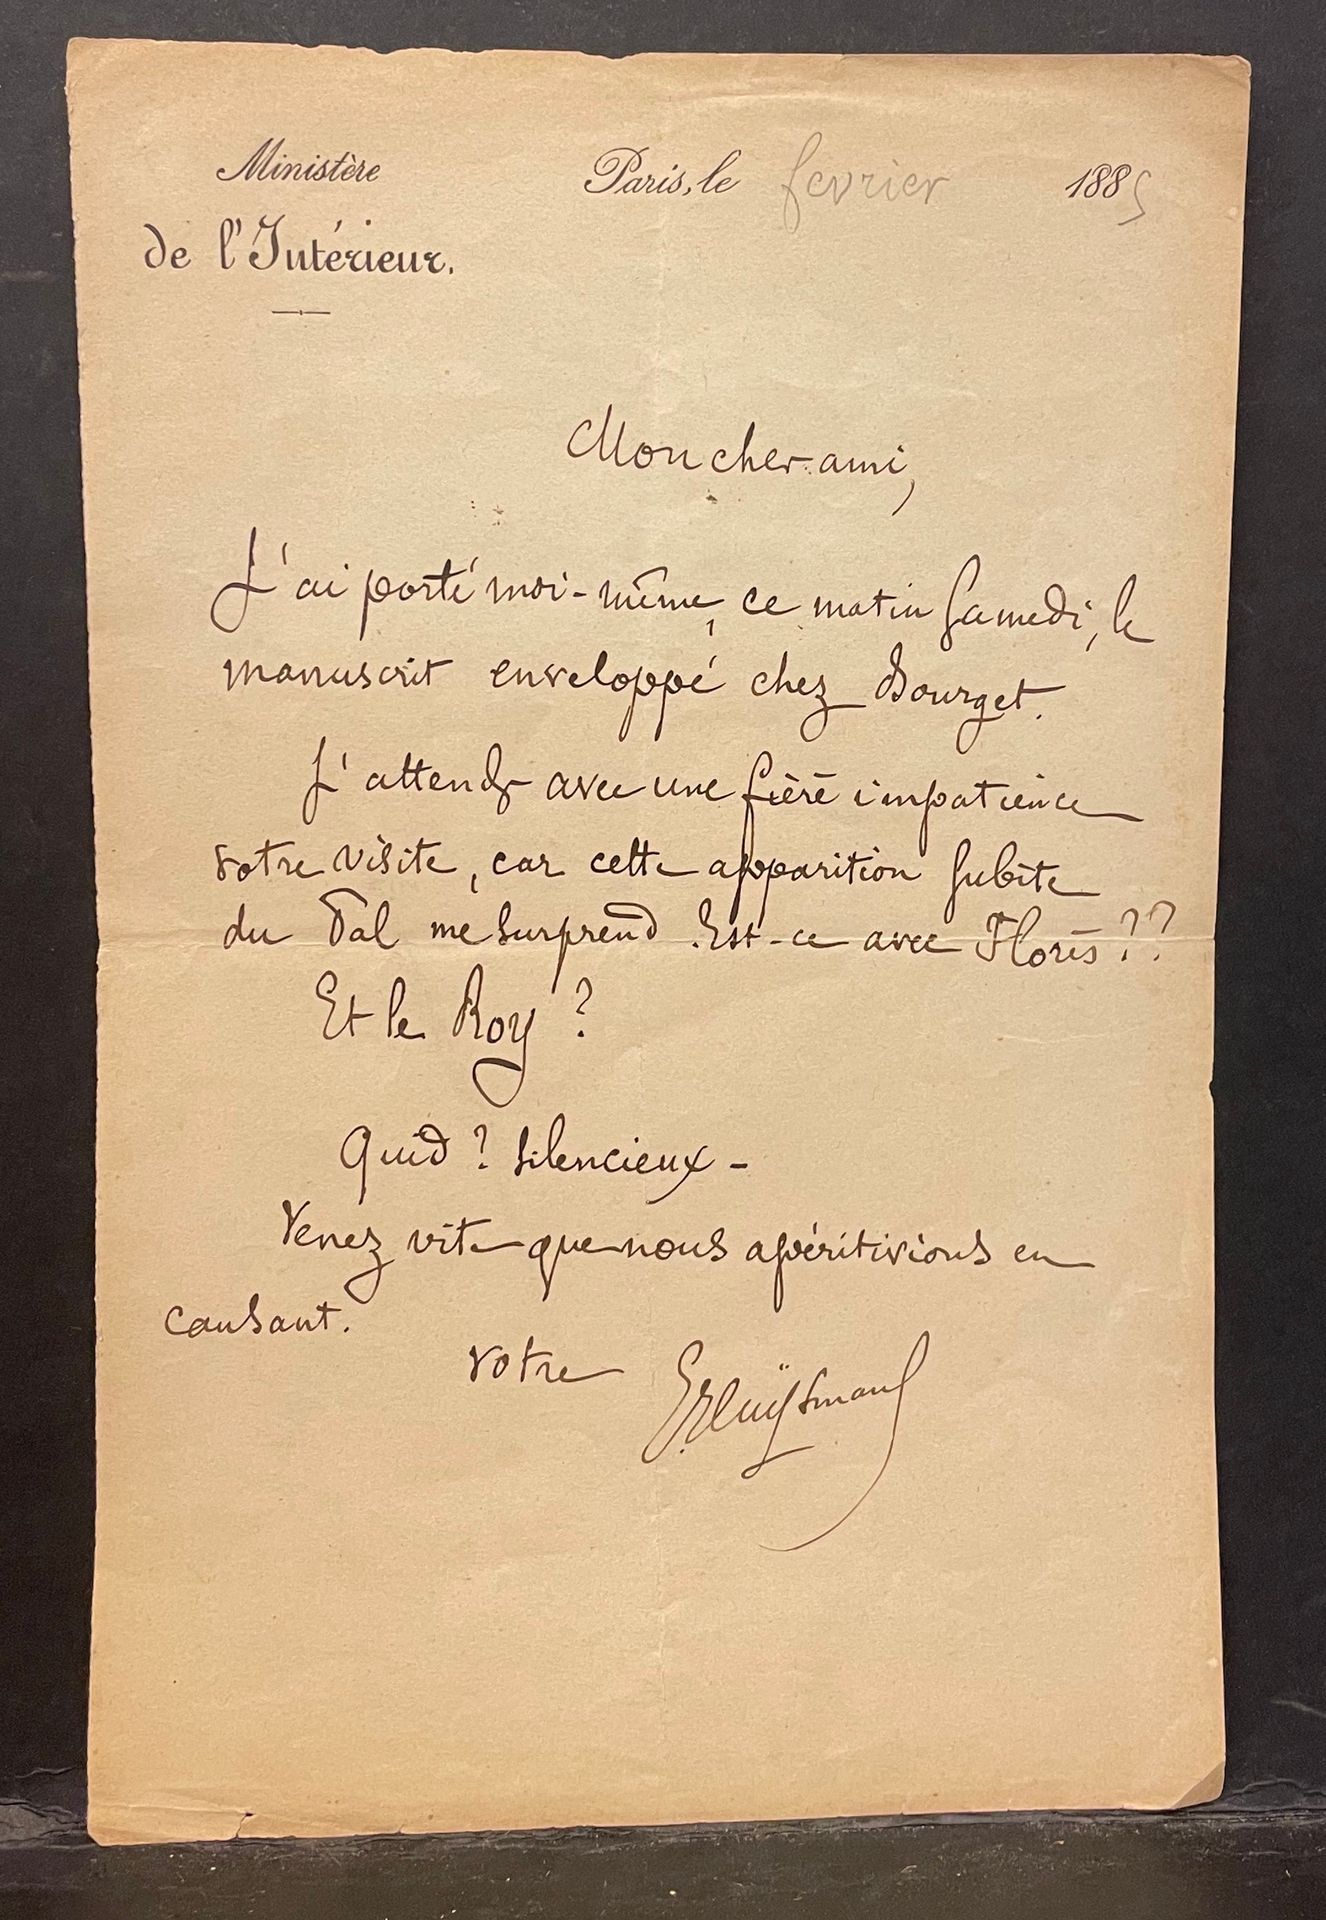 Ministère
de l'Intérieur.
Paris, le février 1885
Mon cher ami,
J'ai porté moi-même, ce matin samedi, le
manuscrit enveloppé chez Bourget.
J'attends avec une fière impatience
votre visite, car cette apparition subite
du Val me surprend. Est-ce avec Florès??
Et le Roy?
Quid? silencieux -
Venez vite que nous apéritivions en
causant.
votre
Huÿsmans